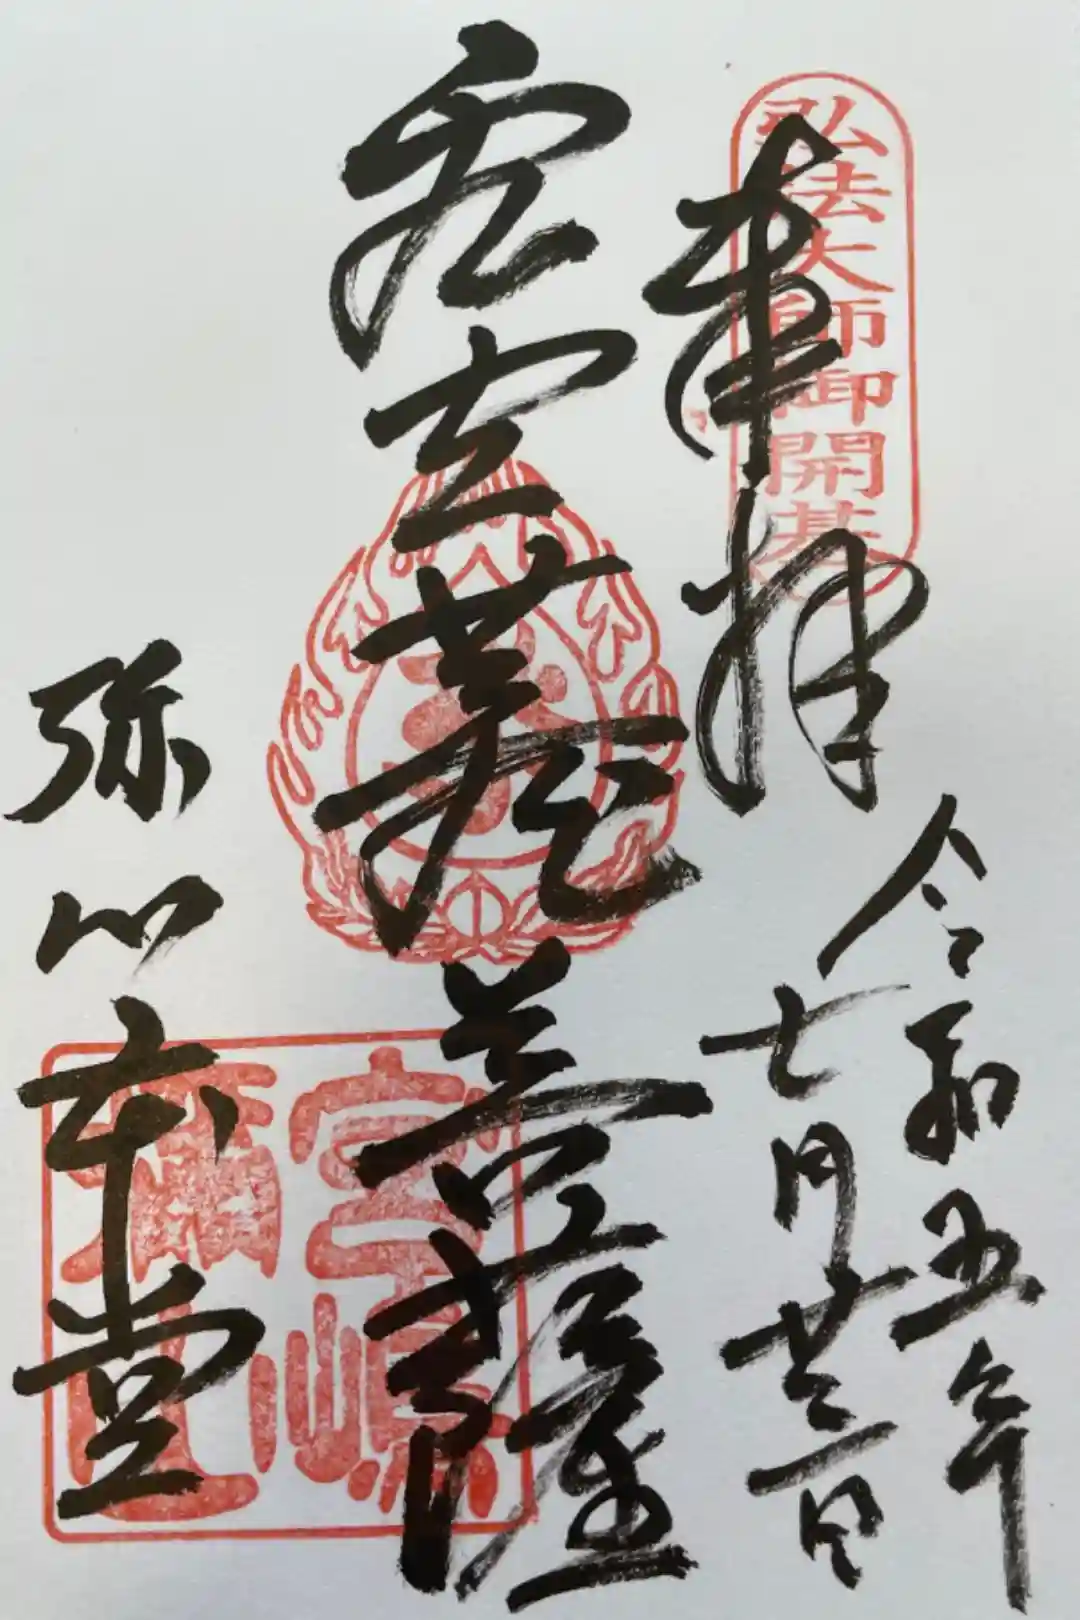 弘法大師御開基
奉拝
令和五年
七月廿三日
虚空蔵菩薩
弥山本堂
宮嶋
彌山